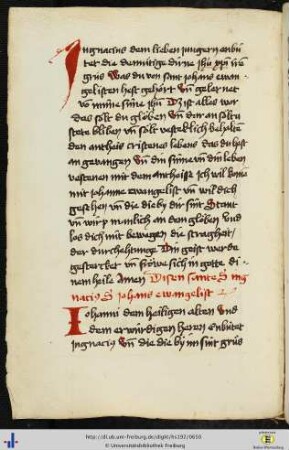 Ingnacius dem lieben jungern enbü
tet die demütige dirne jhu xpi ire
grüs Was du von sant johans ewan
gelisten hest gehört Vn gelernet
vo minne sune jhu Dz ist alles war
das solt du glöben Vn dar an soltu
stete bliben vn solt vesteklich behalte
den antheis cristenes lebens das du hest
an gevangen Vn din sinne vn din leben
vestenen mit dem antheisse Ich wil kome
mit johanne ewangelist vn wil dich
gesehen vn die die by dir sint Stant
vn wirp manlich an dem glöben Vnd
los dich nit bewegen die straghait
der durchehtunge Din geist werde
gestercket vn fröwe sich in gotte di
nem heile Amen Disen sante S ing
nacius S johans ewangelist
Iohanni dem heiligen alten Vnd
dem erwirdigen herren enbütet
Ingnacius Vn die die by im sint grüs
http://dl.ub.uni-freiburg.de/diglit/hs192/0610
© Universitätsbibliothek Freiburg